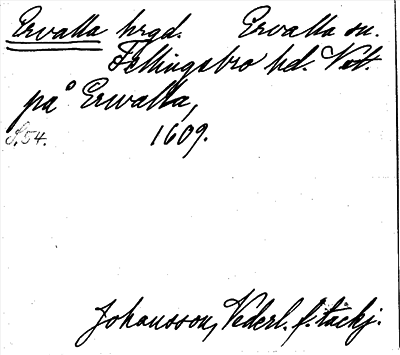 Ervalla hrgd. Ervalla sn.
Fellingsbro hd. Vstm.
på Erwalla,
S.54. 1609.
Johansson, Nederl. f. täckj.